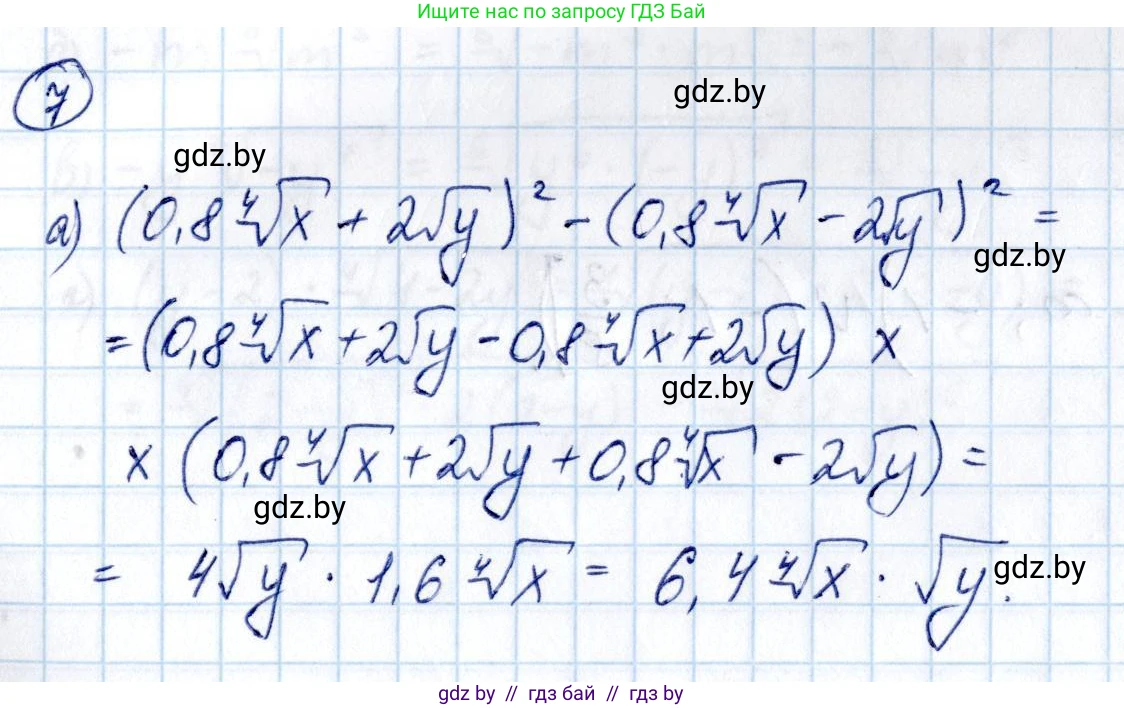 Ищите нас по запросу ГДЗ Бай
7
gdz.by
gdz.by
а) (0,8 ∜x + 2√y)² - (0,8 ∜x - 2√y)² =
gdz.by
= (0,8 ∜x + 2√y - 0,8 ∜x + 2√y) x
gdz.by
x (0,8 ∜x + 2√y + 0,8 ∜x - 2√y) =
gdz.by
= 4√y · 1,6 ∜x = 6,4 ∜x · √y.
gdz.by
gdz.by // гдз бай // гдз by